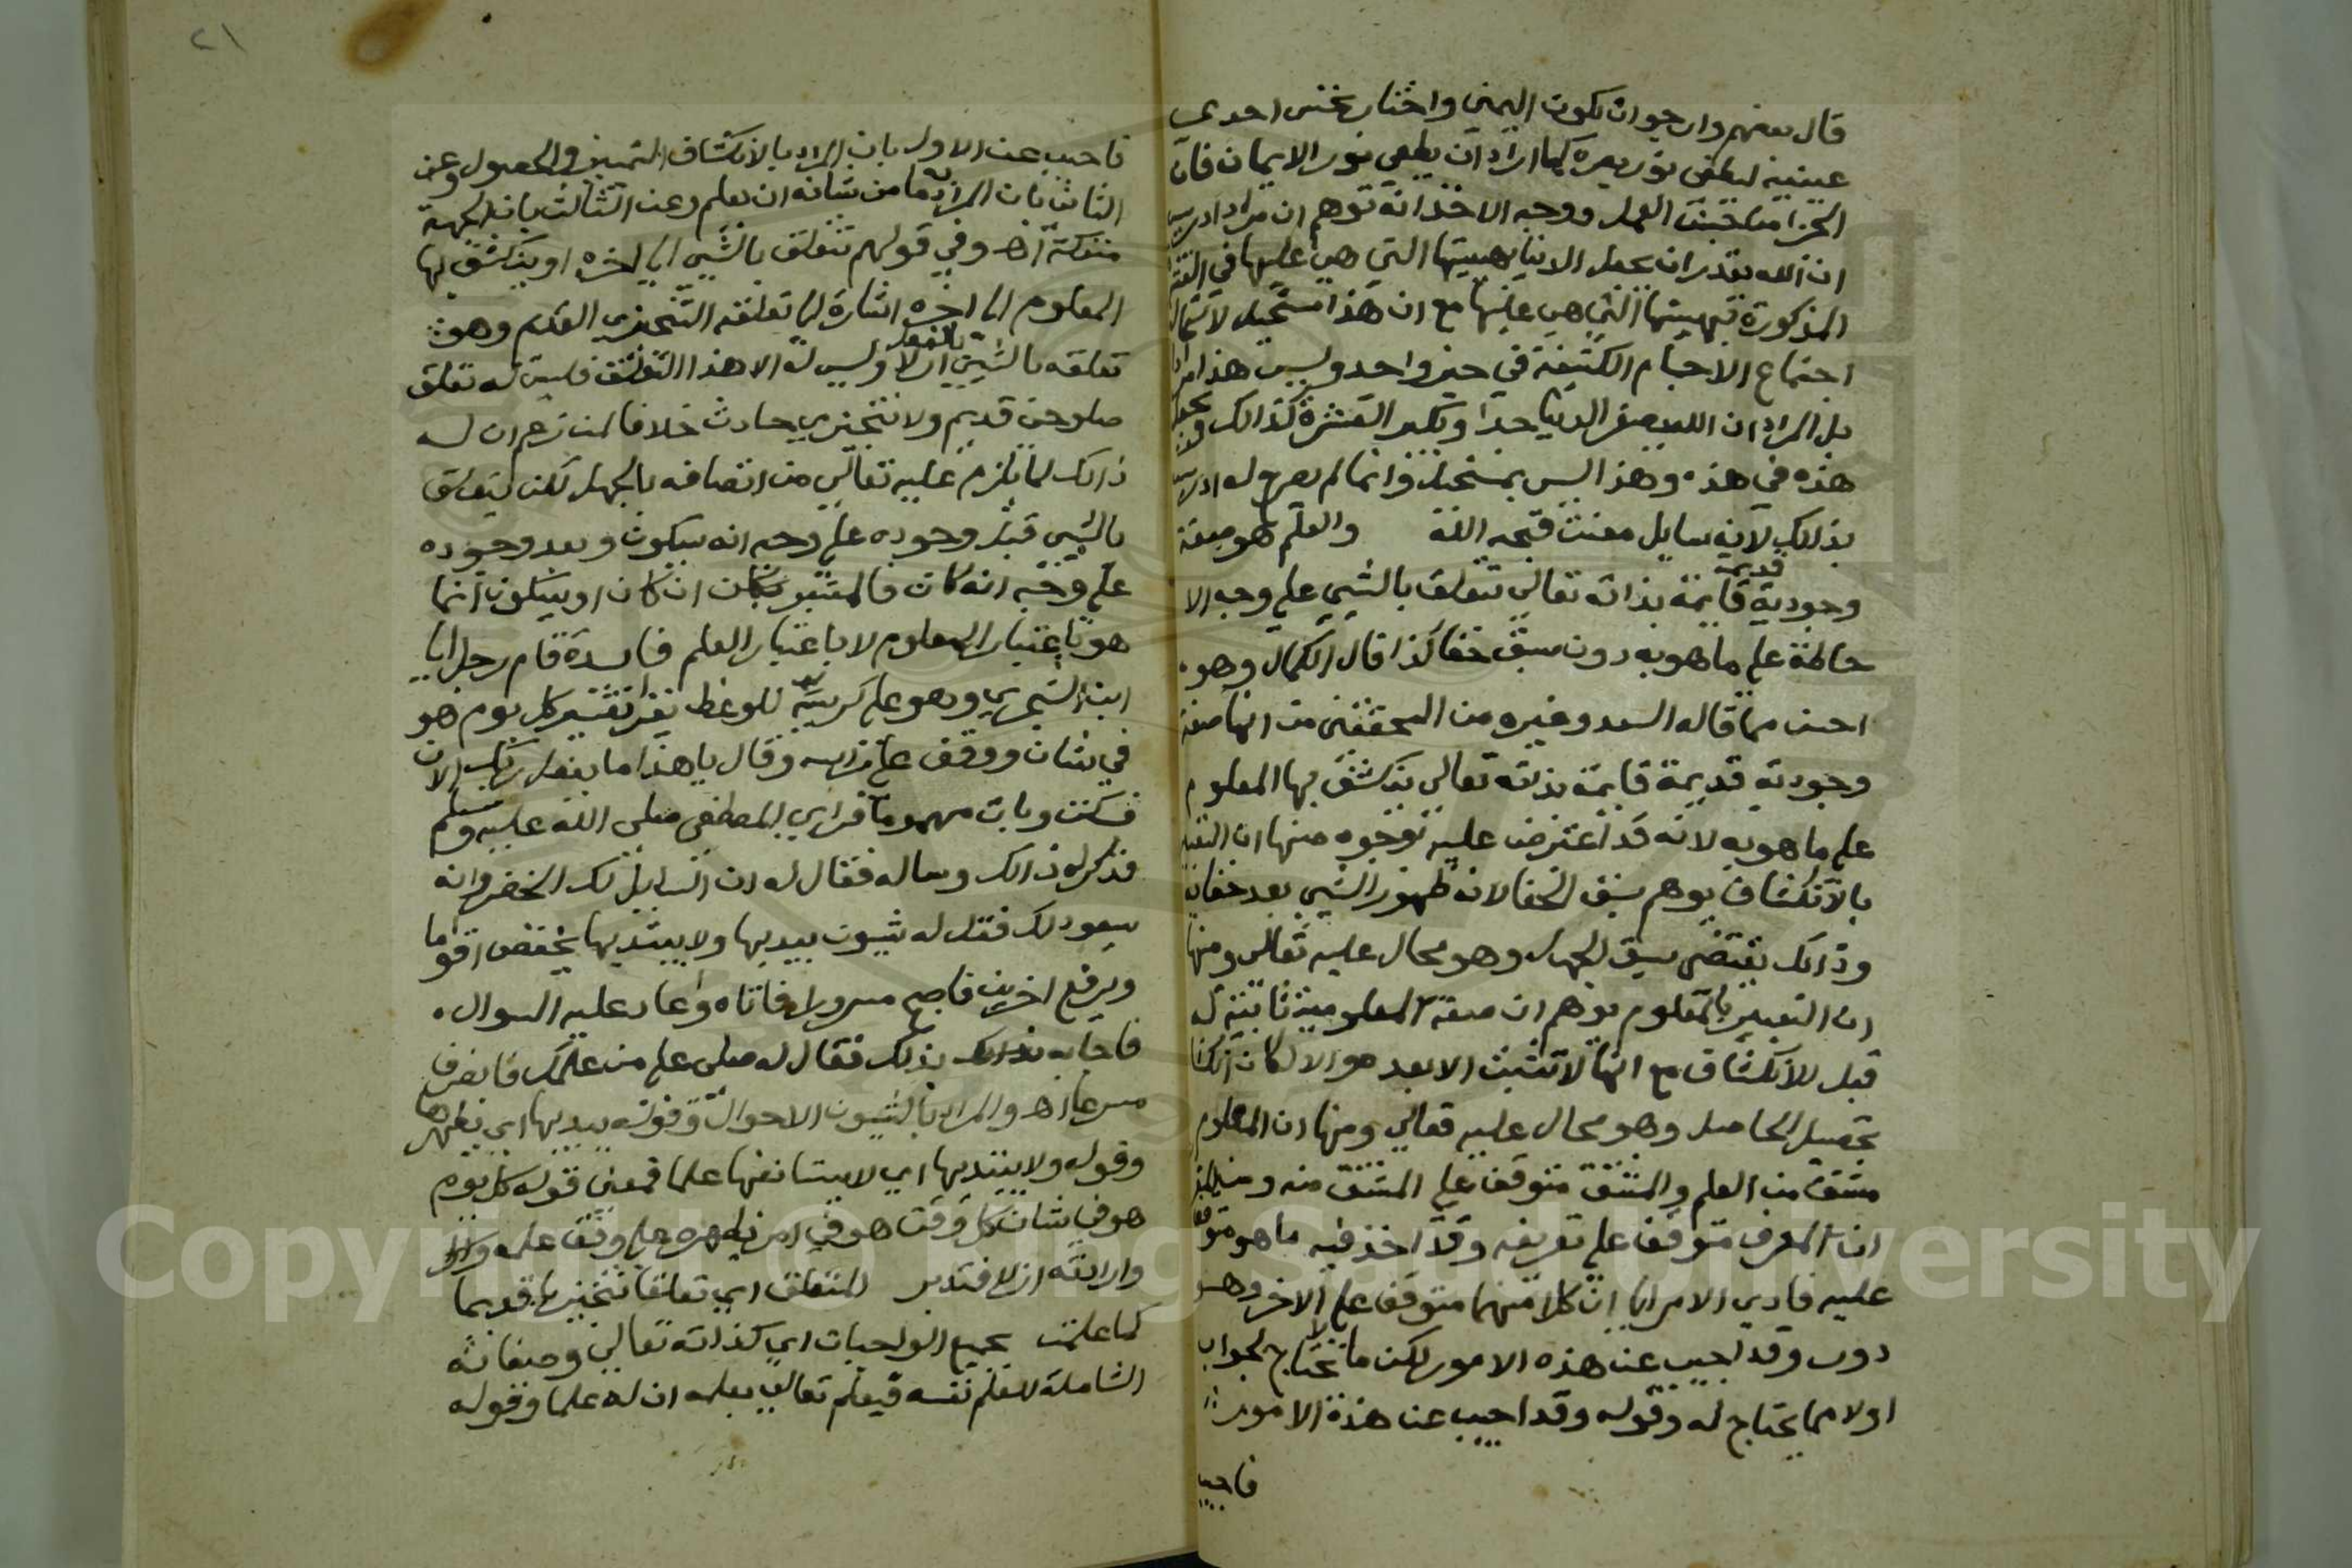 قال بعضهم وارجوا ان تكون اليمنى واختار بخس احدى
عينيه ليطفى نور بصره كما اراد ان يطفى نور الايمان فان
الجزا من جنس العمل ووجه الاخذ انه توهم ان مراد ادريس
ان الله يقدر ان يجعل الدنيا بهيئتها التي هي عليها في القشرة
المذكورة بهيئتها التي هي عليها مع ان هذا مستحيل لاستحالة
اجتماع الاجسام الكثيفة في حيز واحد وليس هذا مرادا
بل المراد ان الله يصغر الدنيا جدا او يكبر القشرة كذالك ويجعل
هذه في هذه وهذا ليس بمستحيل وانما لم يصرح له ادريس
بذلك لانه سايل متعنت قبحه الله والعلم هو صفة
وجودية قديمة قايمة بذاته تعالى تتعلق بالشي على وجه الا
حاطة على ما هو به دون سبق خفا كذا قال الكمال وهو
احسن مما قاله السعد وغيره من المحققين من انها صفة
وجودية قديمة قايمة بذاته تعالى ينكشف بها المعلوم
على ما هو به لانه قد اعترض عليه بوجوه منها ان التعبير
بالانكشاف يوهم سبق الخفا لانه ظهور الشي بعد خفايه
وذالك يقتضى سبق الجهل وهو محال عليه تعالى ومنها
ان التعبير بالمعلوم يوهم ان صفة المعلومية ثابتة له
قبل للانكشاف مع انها لا تثبت الا بعد هو والا لكان انكشا
تحصيل الحاصل وهو محال عليه تعالى ومنها ان المعلوم
مشتق من العلم والمشتق متوقف على المشتق منه ومن المقرر
ان المعرف متوقف على تعريفه وقد اخذ فيه ما هو متوقف
عليه فادي الامر الى ان كلا منهما متوقف على الاخر وهو
دور وقد اجيب عن هذه الامور لكن ما لا يحتاج لجواب
اولا مما يحتاج له وقوله وقد اجيب عن هذه الامور
فاجيب
٢١
فاجيب عن الاول بان المراد بالانكشاف التميز والحصول وعن
الثاني بان المراد ما من شانه ان يعلم وعن الثالث بان الجهة
منفكة اه وفي قولهم تتعلق بالشي الى اخره او ينكشف بها
المعلوم الى اخره اشارة الى تعلقه التنجيزي القديم وهو
تعلقه بالشي ازلا بالفعل وليس له الا هذا التعلق فليس له تعلق
صلوحي قديم ولا تنجيزي حادث خلافا لمن زعم ان له
ذالك لما يلزم عليه تعالى من اتصافه بالجهل لكن يتعلق
بالشي قبل وجوده على وجه انه سيكون وبعد وجوده
على وجه انه كان فالتعبير بكان او سيكون انما
هو باعتبار المعلوم لا باعتبار العلم فايدة قام رجل الى
ابن الشجري وهو على كرسيه للوعظ يقرر تفسير كل يوم هو
في شان ووقف على راسه وقال يا هذا ما يفعل ربك الان
فسكت وبات مهموما فراى المصطفى صلى الله عليه وسلم
فذكر له ذالك وساله فقال له ان السايل لك الخضر وانه
سيعود لك فقل له شيون يبديها ولا يبتديها يخفض اقواما
ويرفع اخرين فاصبح مسرورا فاتاه واعاد عليه السوال
فاجابه بذلك فقال له صلى على من علمك فانصرف
مسرعا اه والمراد بالشيون الاحوال وقوله يبديها اي يظهرها
وقوله ولا يبتديها اي لا يستانفها علما فمعنى قوله كل يوم
هو في شان كل وقت هو في امر يظهره على وفق علمه
وارادته ازلا فتدبر المتعلق اي تعلقا تنجيزيا قديما
كما علمت بجميع الواجبات اي كذاته تعالى وصفاته
الشاملة للعلم نفسه فيعلم تعالى بعلمه ان له علما وقوله